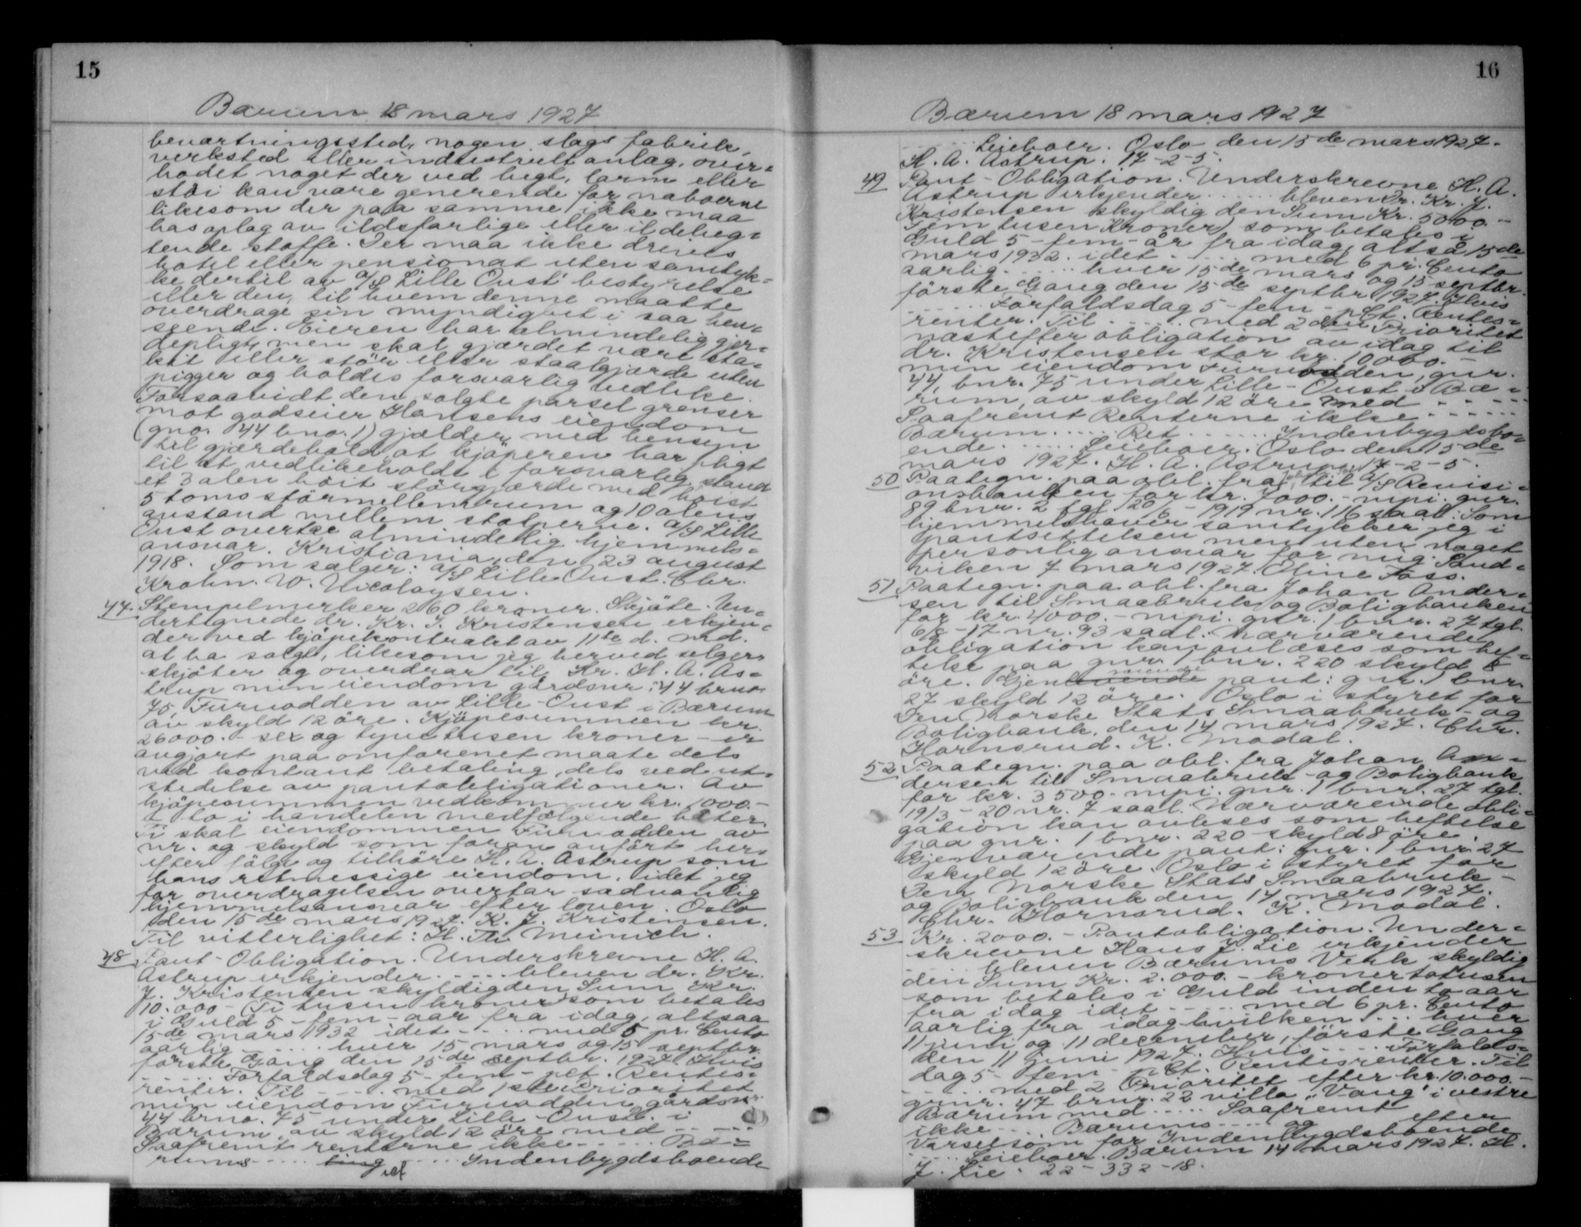 15
Bærum 18 mars 1927
beværtningssted, nogen slags fabrik,
verksted eller industrielt anlæg, over-
hodet noget der ved lugt, larm eller
støi kan være generende for naboerne
likesom der paa samme ikke maa
has oplag av ildsfarlige eller ildelug-
tende stoffe. Der maa ikke drives
hotel eller pensionat uten samtyk-
ke dertil av A/S Lille Oust bestyrelse
eller den, til hvem denne maatte
overdrage sin myndighet i saa hen-
seende. Eieren har almindelig gjer-
depligt, men skal gjærdet være sta-
kit eller stör eller staalgjærde uten
pigger og holdes forsvarlig vedlike
Forsaavidt den solgte parsel grenser
mot godseier Harlsens eiendom
(gno. 44 bno. 1) gjælder med hensyn
til gjærdehold at kjøperen har pligt
til at vedlikeholde i forsvarlig stand
et 3 alen höit störgjærde med höist
5 toms störmellemrum og 10 alens
avstand mellem stolperne. A/S Lille
Oust overtar almindelig hjemmels-
ansvar. Kristiania, den 23 august
1918. Som sælger: A/S Lille Oust. Chr.
Krohn. W. Nicolaysen.
47. Stempelmerker 260 kroner. Skjøte. Un-
dertegnede dr. Kr. J. Kristensen erkjen-
der ved kjøpekontrakt av 11te d. md.
at ha solgt, likesom jeg herved selger
skjøter og overdrar til Hr. H. A. As-
trup min eiendom gårdsnr. 44 brnr
75, Furuodden av Lille-Oust i Bærum
av skyld 12 öre. Kjøpesummen kr.
26000.- sex og tyvetusen kroner - er
avgjort paa omforenet maate dels
ved kontant betaling, dels ved ut-
stedelse av pantobligationer. Av
kjøpesummen vedkommer kr. 1000.-
to i handelen medfølgende båter.
Ti skal eiendommen Furuodden av
nr. og skyld som foran anfört her-
efter følge og tilhöre H. A. Astrup som
hans retmessige eiendom, idet jeg
for overdragelsen overtar sædvanlig
hjemmelsansvar efter loven. Oslo
den 15de mars 1927. K. J. Kristensen.
Til vitterlighet: H. Th. Meinich.
48 Pant-Obligation. Underskrevne H. A.
Astrup erkjender .... bleven dr. Kr.
J. Kristensen skyldig den Sum Kr.
10.000 Ti tusen kroner som betales
i Guld 5 - fem - aar fra idag, altsaa
15de mars 1932 idet .... med 6 pr. Cento
aarlig .... hver 15 mars og 15 septbr.
förste Gang den 15de septbr. 1927 Hvis
.... Forfaldsdag 5 - fem - pct. Rentes-
renter. Til .... med 1ste Prioritet
min eiendom Furuodden gårdsnr
44 brno. 75 under Lille Oust i
Bærum av skyld 12 öre med ....
Saafremt renterne ikke .... Bæ-
rums .... ting .... Indenbygdsboende
ret
16
Bærum 18 mars 1927
.... Leieboer. Oslo den 15de mars 1927.
H. A. Astrup. 17-2-5.
49 Pant-Obligation. Underskrevne H. A.
Astrup erkjender .... bleven Dr. Kr. J.
Kristensen skyldig den Sum Kr. 5000.-
Fem tusen Kroner, som betales i
Guld 5 - fem - år fra idag, altså 15de
mars 1932. idet .... med 6 pr. Cento
aarlig .... hver 15de mars og 15 septbr.
förste Gang den 15de septbr 1927. Hvis
.... Forfaldsdag 5 - fem pct. Rentes-
renter. Til .... med 2den Prioritet
næstefter obligation av idag til
dr. Kristensen stor kr. 10000.-
min eiendom Furuodden gnr.
44, bnr. 75 under Lille-Oust i Bæ-
rum, av skyld 12 öre med ....
Saafremt Renterne ikke ....
Bærum .... Ret .... Indenbygdsbo-
ende .... Leieboer. Oslo den 15de
mars 1927. H. A. Astrup. 17-2-5.
50 Paategn. paa obl. fra til A/S Revisi-
onsbanken for kr. 7000.- mpi. gnr.
89 bnr. 2 tgl. 20/6 - 1919 nr. 116 saal. Som
hjemmelshaver samtykker jeg i
pantsettelsen men uten noget
personlig ansvar for mig. Sand-
viken 7 mars 1927. Oline Foss.
51. Paategn. paa obl. fra Johan Ander-
sen til Smaabruk og Boligbanken
for kr. 4000.- mpi. gnr. 1 bnr. 27 tgl.
6/8 - 17 nr. 93 saal. Nærværende
obligation kan avlæses som hef-
telse paa gnr. 1 bnr. 220 skyld 8
öre. Gjenværende pant: gnr. 1 bnr.
27 skyld 12 öre. Oslo i styret for
Den Norske Stats Smaabruk- og
Boligbank, den 14 mars 1927. Chr.
Hornsrud. K. Modal.
52 Paategn. paa obl. fra Johan An-
dersen til Smaabruk- og Boligbank
for kr. 3500.- mpi. gnr. 1 bnr. 27 tgl.
19/3 - 20 nr. 7 saal. Nærværende obli-
gation kan avløses som heftelse
paa gnr. 1 bnr. 220 skyld 8 öre.
Gjenværende pant: gnr. 1 bnr. 27
skyld 12 öre. Oslo i styret for
Den Norske Stats Smaabruk-
og Boligbank den 14 mars 1927.
Chr. Hornsrud. K. Modal.
53 Kr. 2000.- Pantobligation. Under-
skrevne Hans J. Lie erkjender
.... bleven Bærums Verk skyldig
den Sum Kr. 2.000.- kroner totusen
som betales i Guld inden to aar
fra idag idet .... med 6 pr. Cento
aarlig fra idag hvilken .... hver
11 juni og 11 december, förste Gang
den 11 juni 1927. Hvis .... Forfalds-
dag 5 fem - pct. Rentesrenter. Til
.... med 2 Prioritet efter kr. 10.000.-
gnr. 47 brnr. 22 villa "Vang" i vestre
Bærum med .... Saafremt
ikke .... Bærums .... og efter
Varsel som for Indenbygdsboende
.... Leieboer. Bærum 14 mars 1927. H.
J. Lie. 22-332-18.